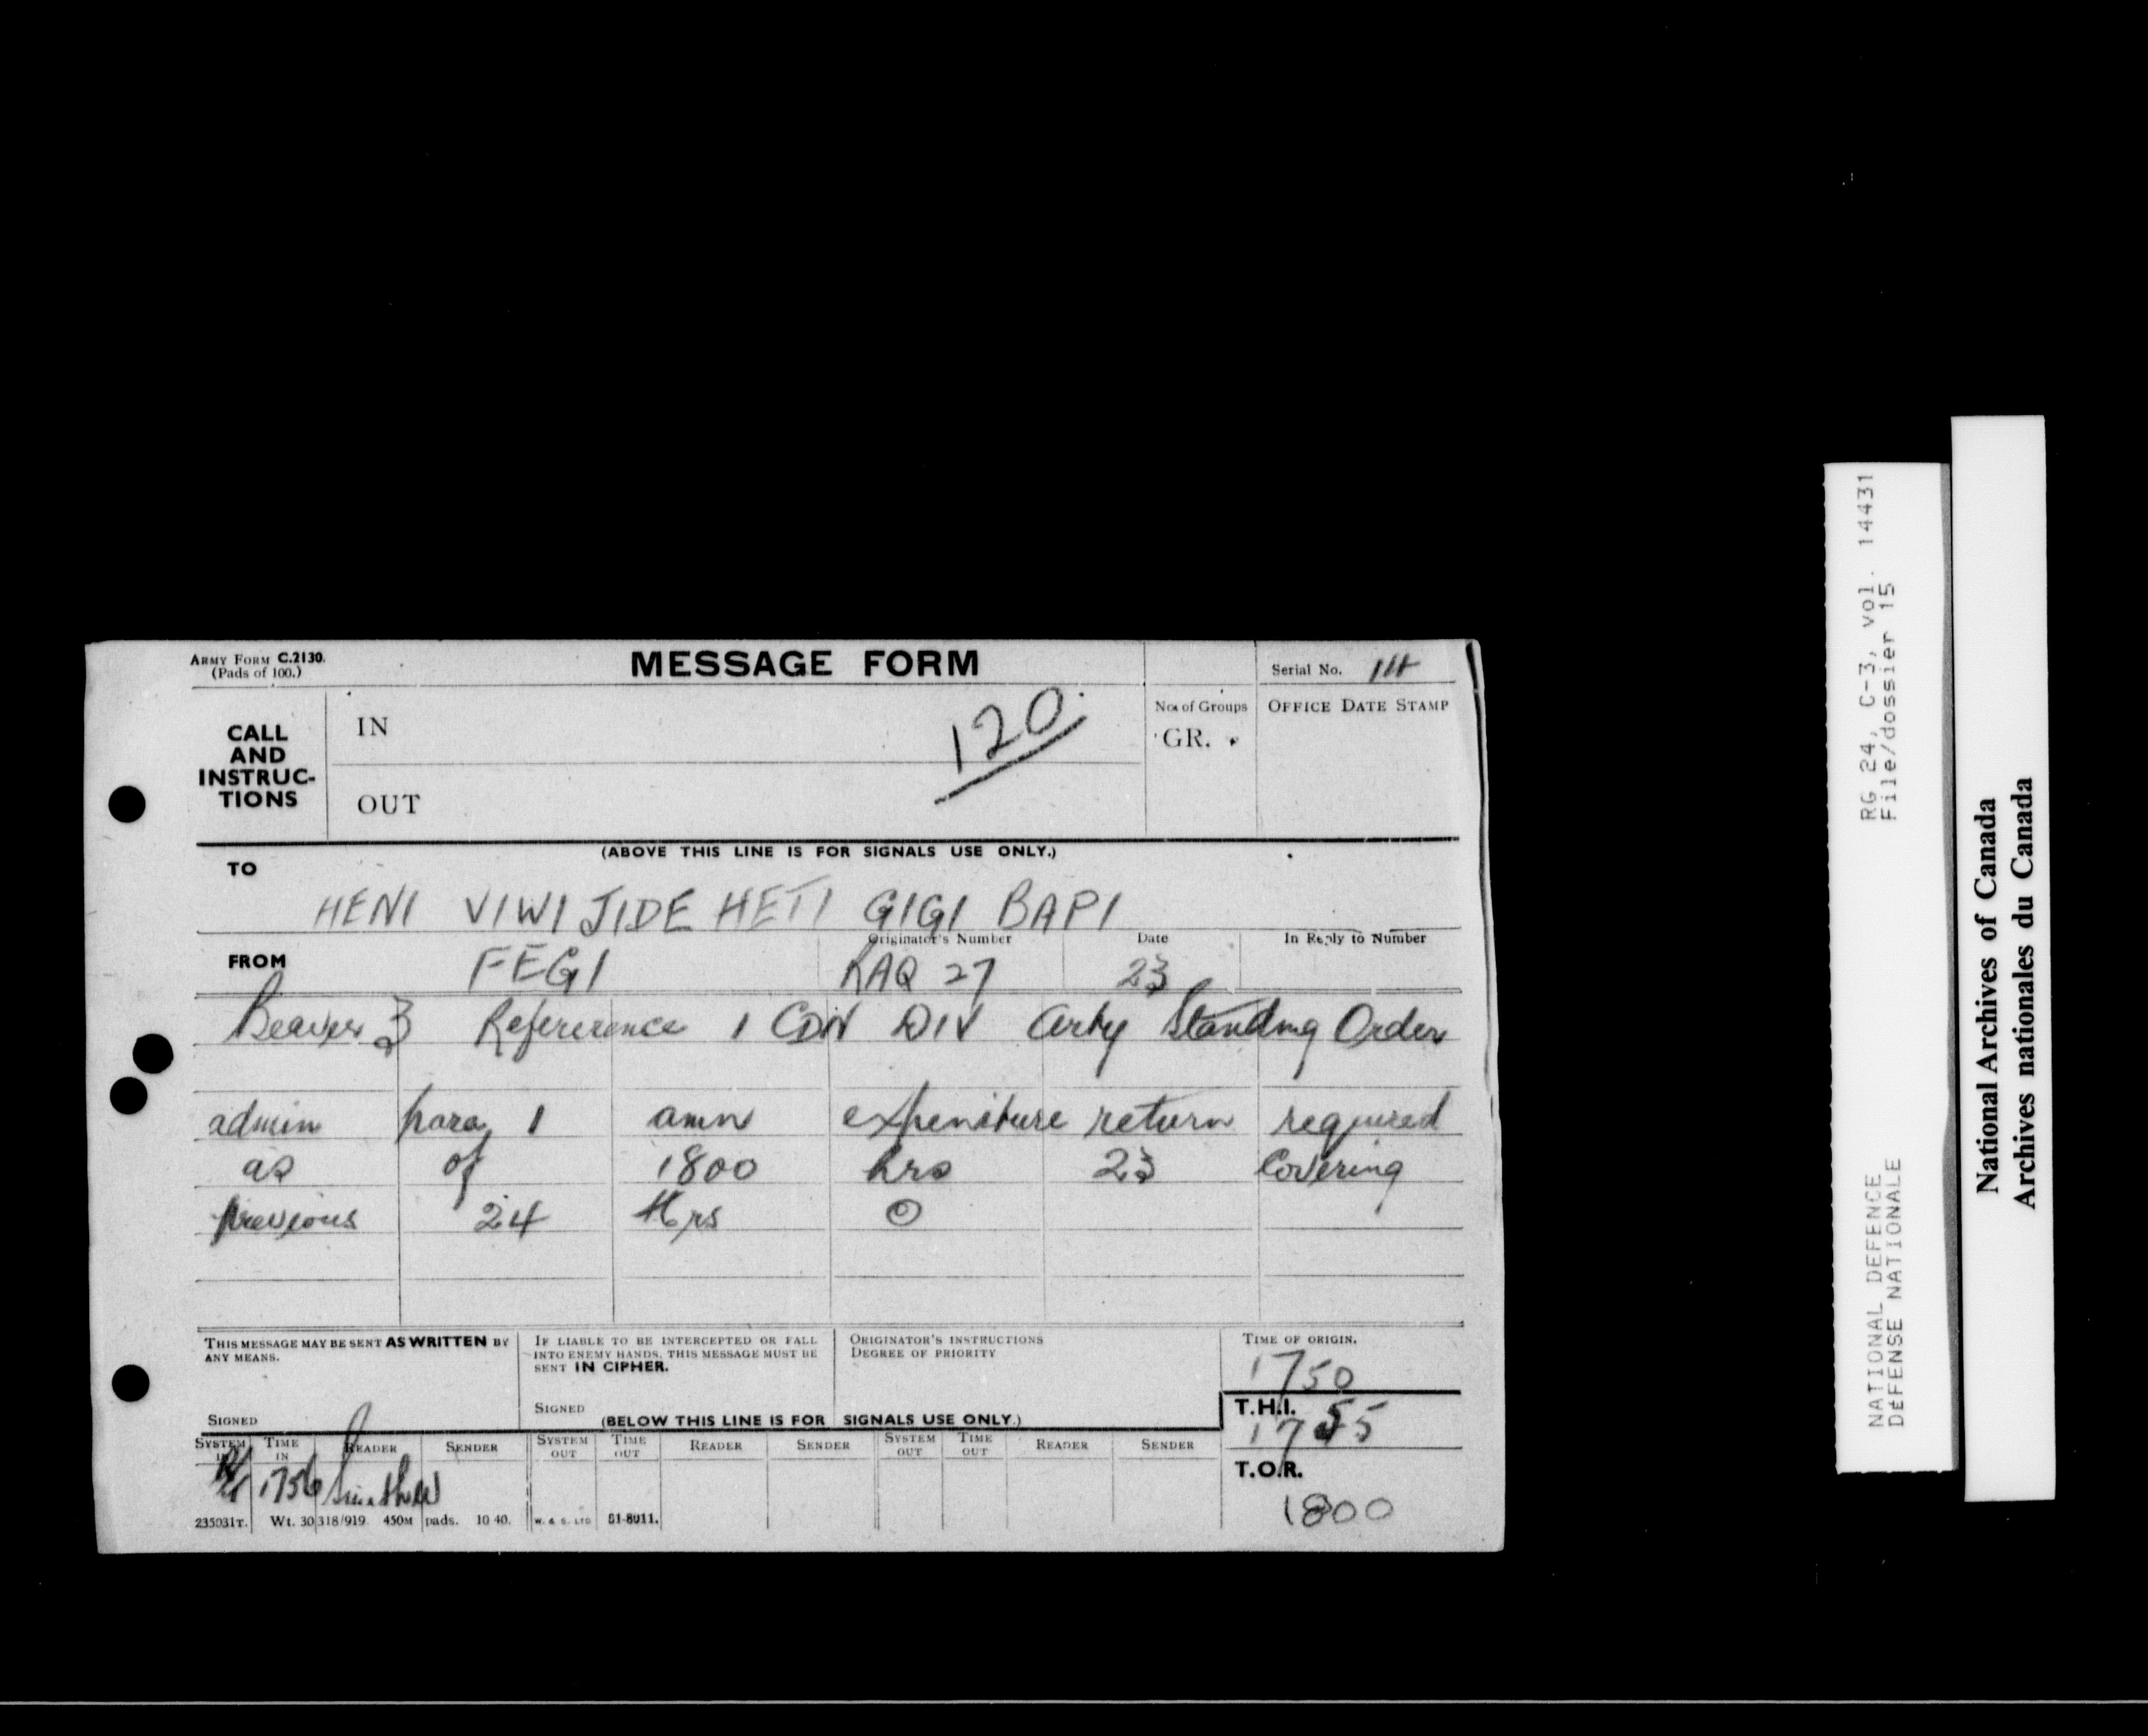 ARMY FORM C.2130.
(Pads of 100.)
MESSAGE FORM
Serial No.
CALL AND INSTRUC-TIONS
IN
120
Nos of Groups
GR.
OFFICE DATE STAMP
OUT
(ABOVE THIS LINE IS FOR SIGNALS USE ONLY.)
TO
HENI VIWI JIDE HETI GIGI BAPI
FROM
FEGI
Originator's Number
RAQ 27
Date
23
In Reply to Number
Beaver 3 Refererence 1 CDN DIV Arty Standing Orders
admin para 1 amn expeniture return required
as of 1800 hrs 23 Covering
previous 24 Hrs
THIS MESSAGE MAY BE SENT AS WRITTEN BY
ANY MEANS.
SIGNED
IF LIABLE TO BE INTERCEPTED OR FALL
INTO ENEMY HANDS, THIS MESSAGE MUST BE
SENT IN CIPHER.
SIGNED
ORIGINATOR'S INSTRUCTIONS
DEGREE OF PRIORITY
TIME OF ORIGIN.
1750
(BELOW THIS LINE IS FOR SIGNALS USE ONLY.)
T.H.I.
1755
T.O.R.
1800
SYSTEM IN TIME IN READER SENDER SYSTEM OUT TIME OUT READER SENDER SYSTEM OUT TIME OUT READER SENDER
R/T 1756
235031T. Wt. 30318/919 450M pads. 10 40. W. & S. LTD 51-8011.
RG 24, C-3, vol. 14431
File/dossier 15
NATIONAL DEFENCE
DÉFENSE NATIONALE
National Archives of Canada
Archives nationales du Canada